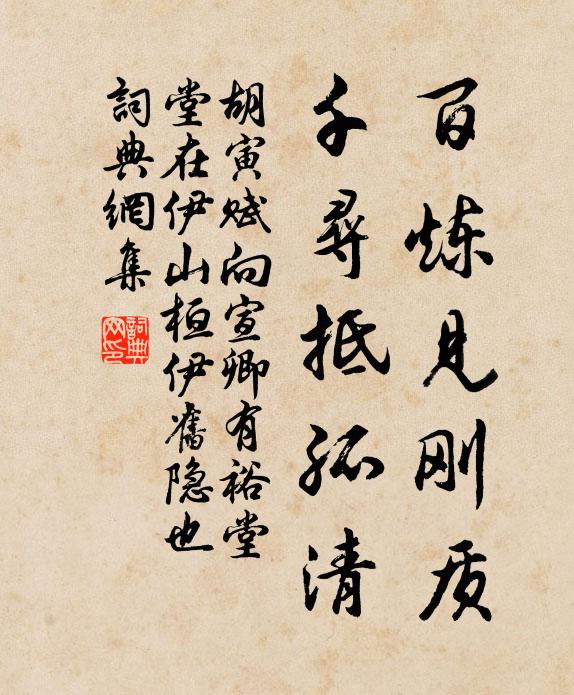 百炼见刚质
千寻抵孤清
胡寅赋向宣卿有裕堂
堂在伊山桓伊旧隐也
词典網集
詞典
网印